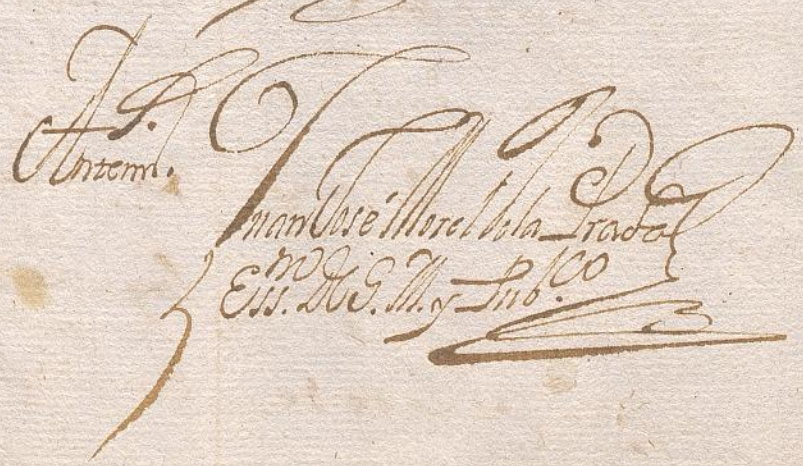 Antemi.
Juan José Morel dela Prada
Ess.no De S. M. y Pub.co